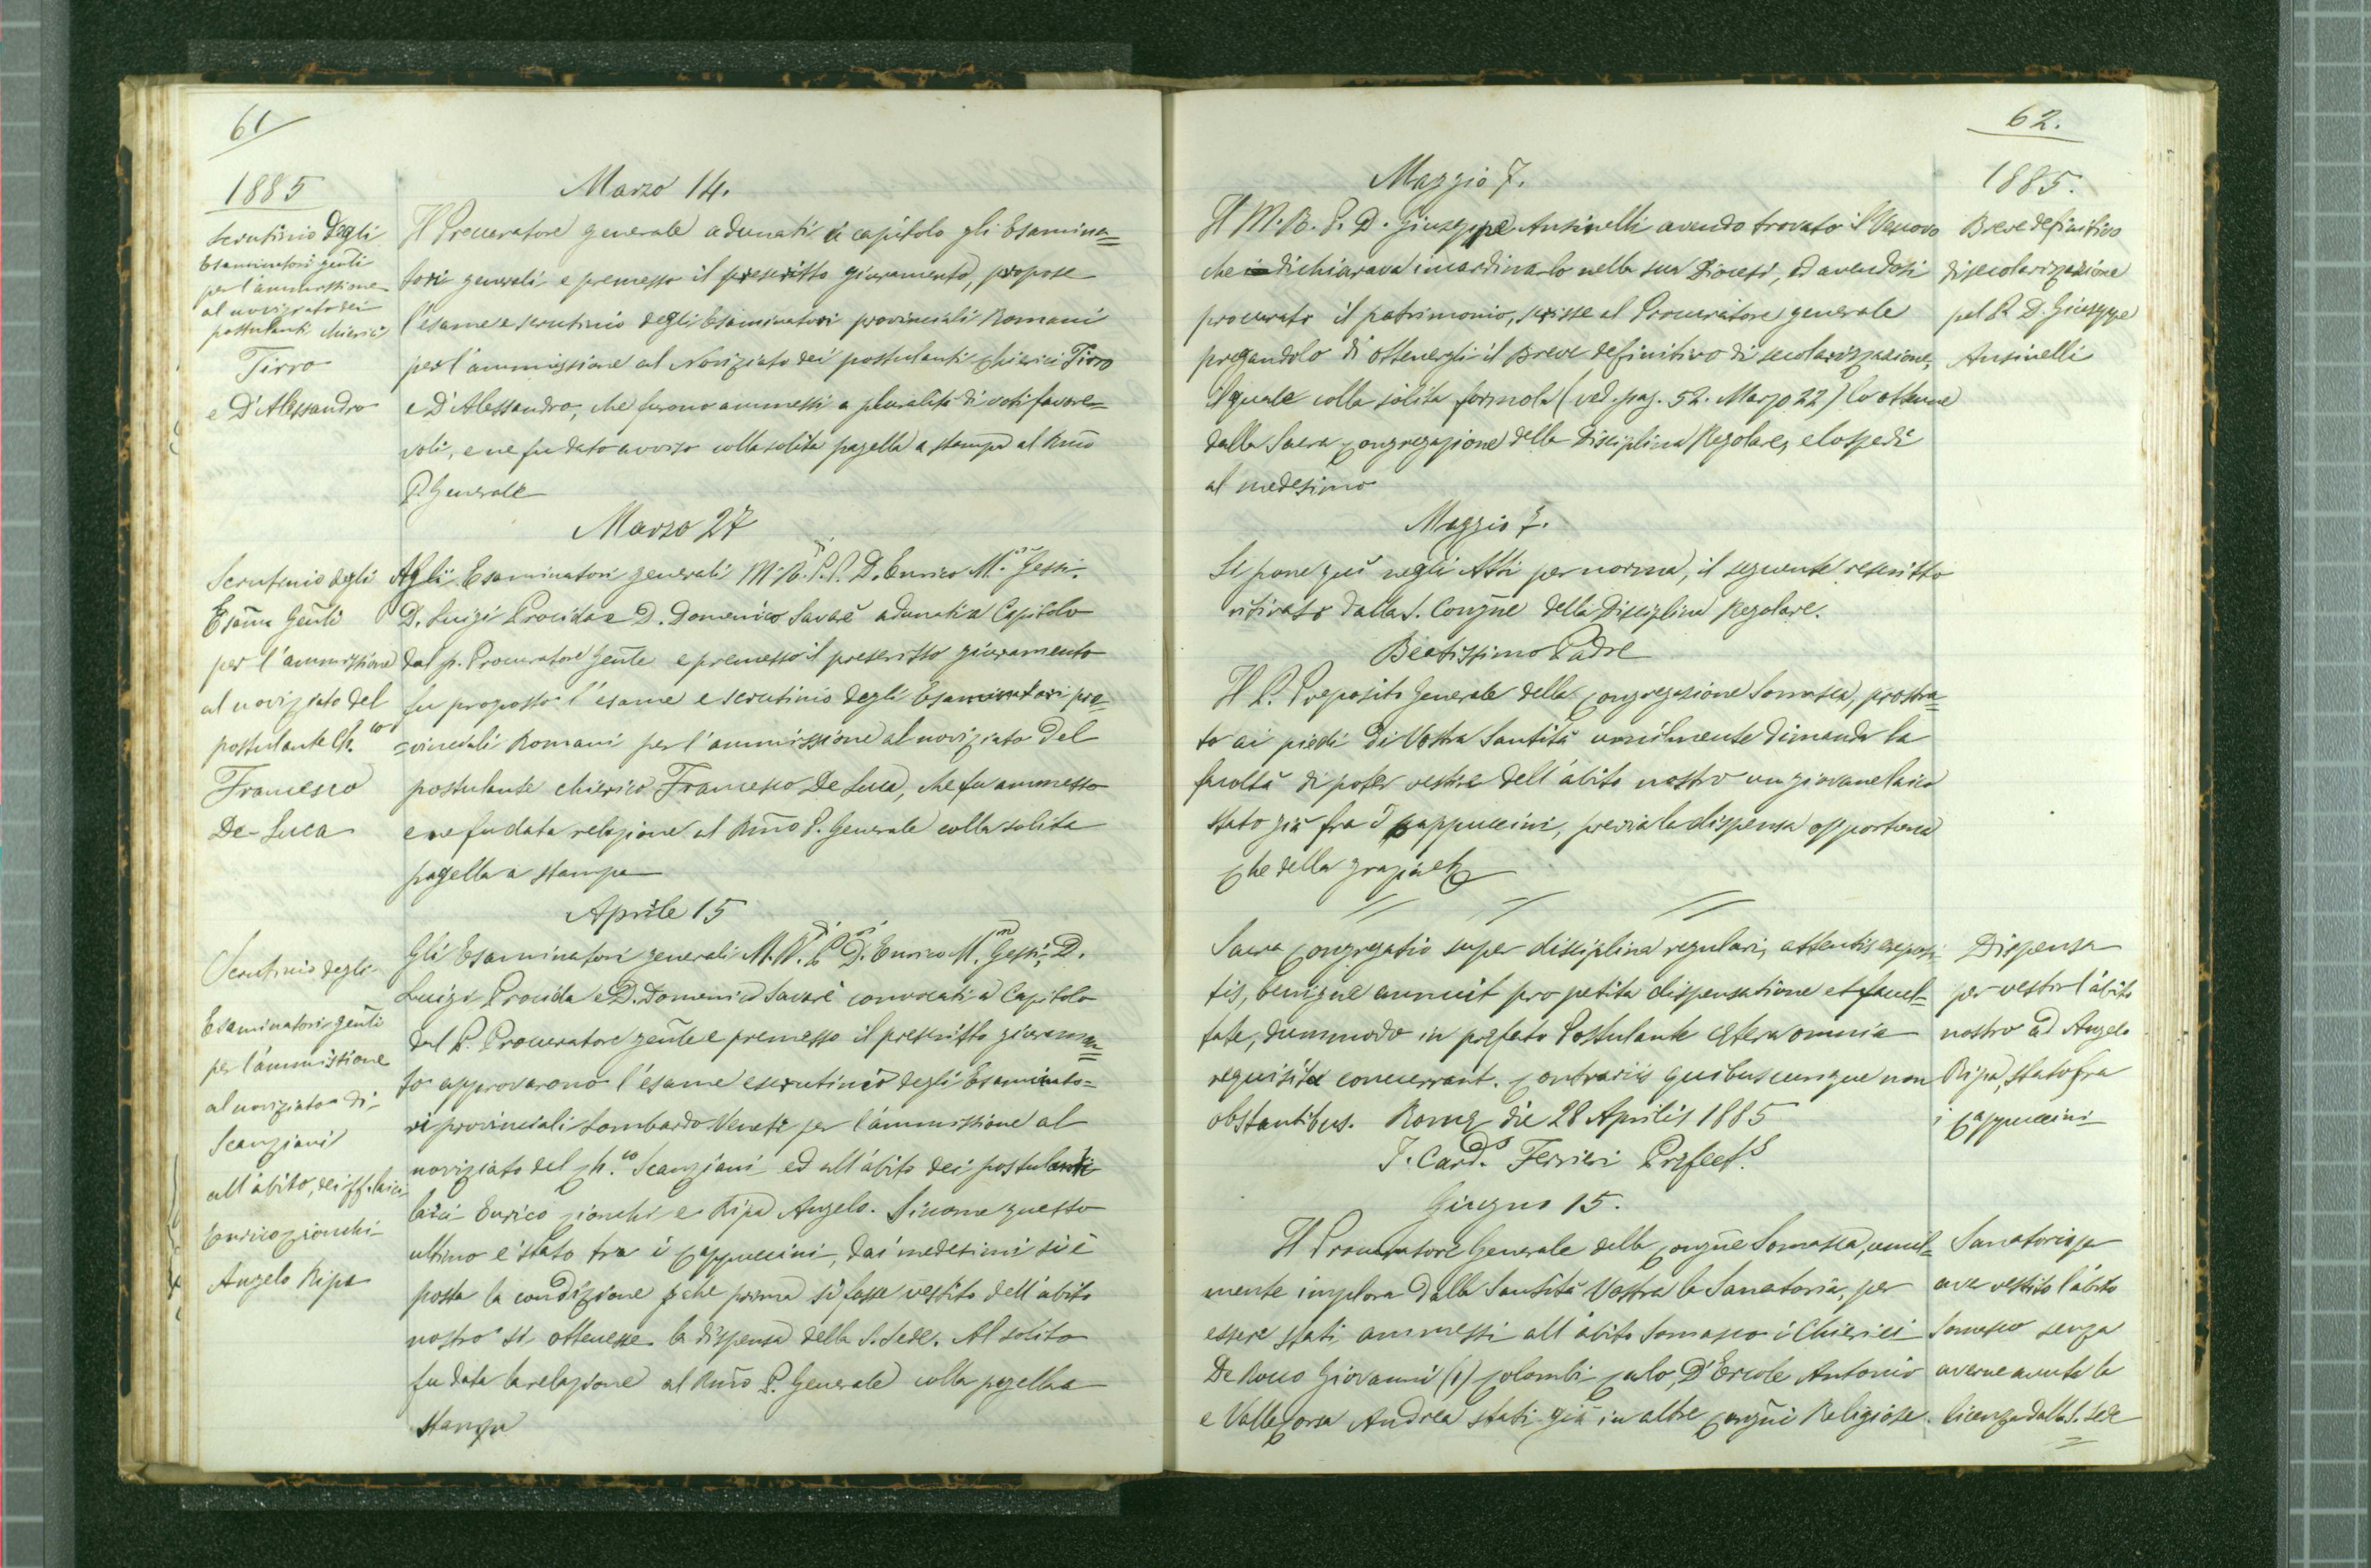 61
1885
Scrutinio degli
Esaminatori genli
per l'ammissione
al noviziato dei
postulanti chierici
Tirro
e D'Alessandro
Marzo 14.
Il Procuratore generale adunati a capitolo gli Esamina=
tori generali e premesso il prescritto giuramento, propose
l'esame e scrutinio degli Esaminatori provinciali Romani
per l'ammissione al Noviziato dei postulanti chierici Tirro
e D'Alessandro, che furono ammessi a pluralità di voti favore=
voli, e ne fu dato avviso colla solita pagella a stampa al Rmo
P. Generale
Marzo 27
Scrutinio degli
Esamri Genli
per l'ammissione
al noviziato del
postulante Ch.co
Francesco
De-Luca
Agli Esaminatori generali M. R. P. P. D. Enrico M. Gessi,
D. Luigi Procida e D. Domenico Savarè adunati a Capitolo
dal p. Procuratore Genle e premesso il prescritto giuramento
fu proposto l'esame e scrutinio degli Esaminatori pro=
=vinciali Romani per l'ammissione al noviziato del
postulante chierico Francesco De Luca, che fu ammesso
e ne fu data relazione al Rmo P. Generale colla solita
pagella a stampa
Aprile 15
Scrutinio degli
Esaminatori genli
per l'ammissione
al noviziato di
Scanziani
all'abito, dei ff. laici
Enrico Cionchi
Angelo Ripa
Gli Esaminatori generali M. R. P. D. Enrico M. Gessi, D.
Luigi Procida e D. Domenico Savarè convocati a Capitolo
dal P. Procuratore genle e premesso il prescritto giuramen=
to approvarono l'esame e scrutinio degli Esaminato=
ri provinciali Lombardo-Veneti per l'ammissione al
noviziato del Ch.co Scanziani ed all'abito dei postulanti
laici Enrico Cionchi e Ripa Angelo. Siccome questo
ultimo è stato tra i Cappuccini, dai medesimi si è
posta la condizione che prima si fosse vestito dell'abito
nostro si ottenesse la dispensa della S. Sede. Al solito
fu data la relazione al Rmo P. Generale colla pagella a
stampa
62.
1885.
Maggio 7.
Il M. R. P. D. Giuseppe Ansinelli avendo trovato il Vescovo
che dichiarava incardinarlo nella sua Diocesi, ed avendosi
procurato il patrimonio, scrisse al Procuratore generale
pregandolo di ottenergli il Breve definitivo di secolarizzazione,
il quale colla solita formola (ved. pag. 52. Marzo 22) lo ottenne
dalla Sacra Congregazione della Disciplina Regolare, e lo spedì
al medesimo
Breve definitivo
di secolarizzazione
pel P. D. Giuseppe
Ansinelli
Maggio 7.
Si pone quì negli Atti per norma, il seguente rescritto
ritirato dalla S. Congne della Disciplina Regolare.
Beatissimo Padre
Il P. Preposito Generale della Congregazione Somasca, prostra=
to ai piedi di Vostra Santità umilmente dimanda la
facoltà di poter vestire dell'abito nostro un giovane laico
stato già fra i Cappuccini, previa la dispensa opportuna
Che della grazia etc
Sacra Congregatio super disciplina regulari, attentis exposi
tis, benigne annuit pro petita dispensatione et facul=
tate, dummodo in prefato Postulante cetera omnia
requisita concurrant. Contrariis quibuscunque non
obstantibus. Romæ die 28 Aprilis 1885
I. Card.s Ferrieri Præfect.s
Dispensa
per vestir l'abito
nostro ad Angelo
Ripa, stato fra
i Cappuccini
Giugno 15.
Il Procuratore Generale della Congne Somasca, umil=
mente implora dalla Santità Vostra la Sanatoria, per
essere stati ammessi all'abito Somasco i Chierici
De Rocco Giovanni (1) Colombi Carlo, D'Ercole Antonio
e Valle Corsa Andrea stati già in altre Congni Religiose.
Sanatoria per
aver vestito l'abito
Somasco senza
averne avuta la
licenza dalla S. Sede